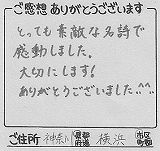 ご感想 ありがとうございます
とっても素敵な名詩で
感動しました。
大切にします!
ありがとうございました^^
ご住所 神奈川 都道府県 横浜 市区町村